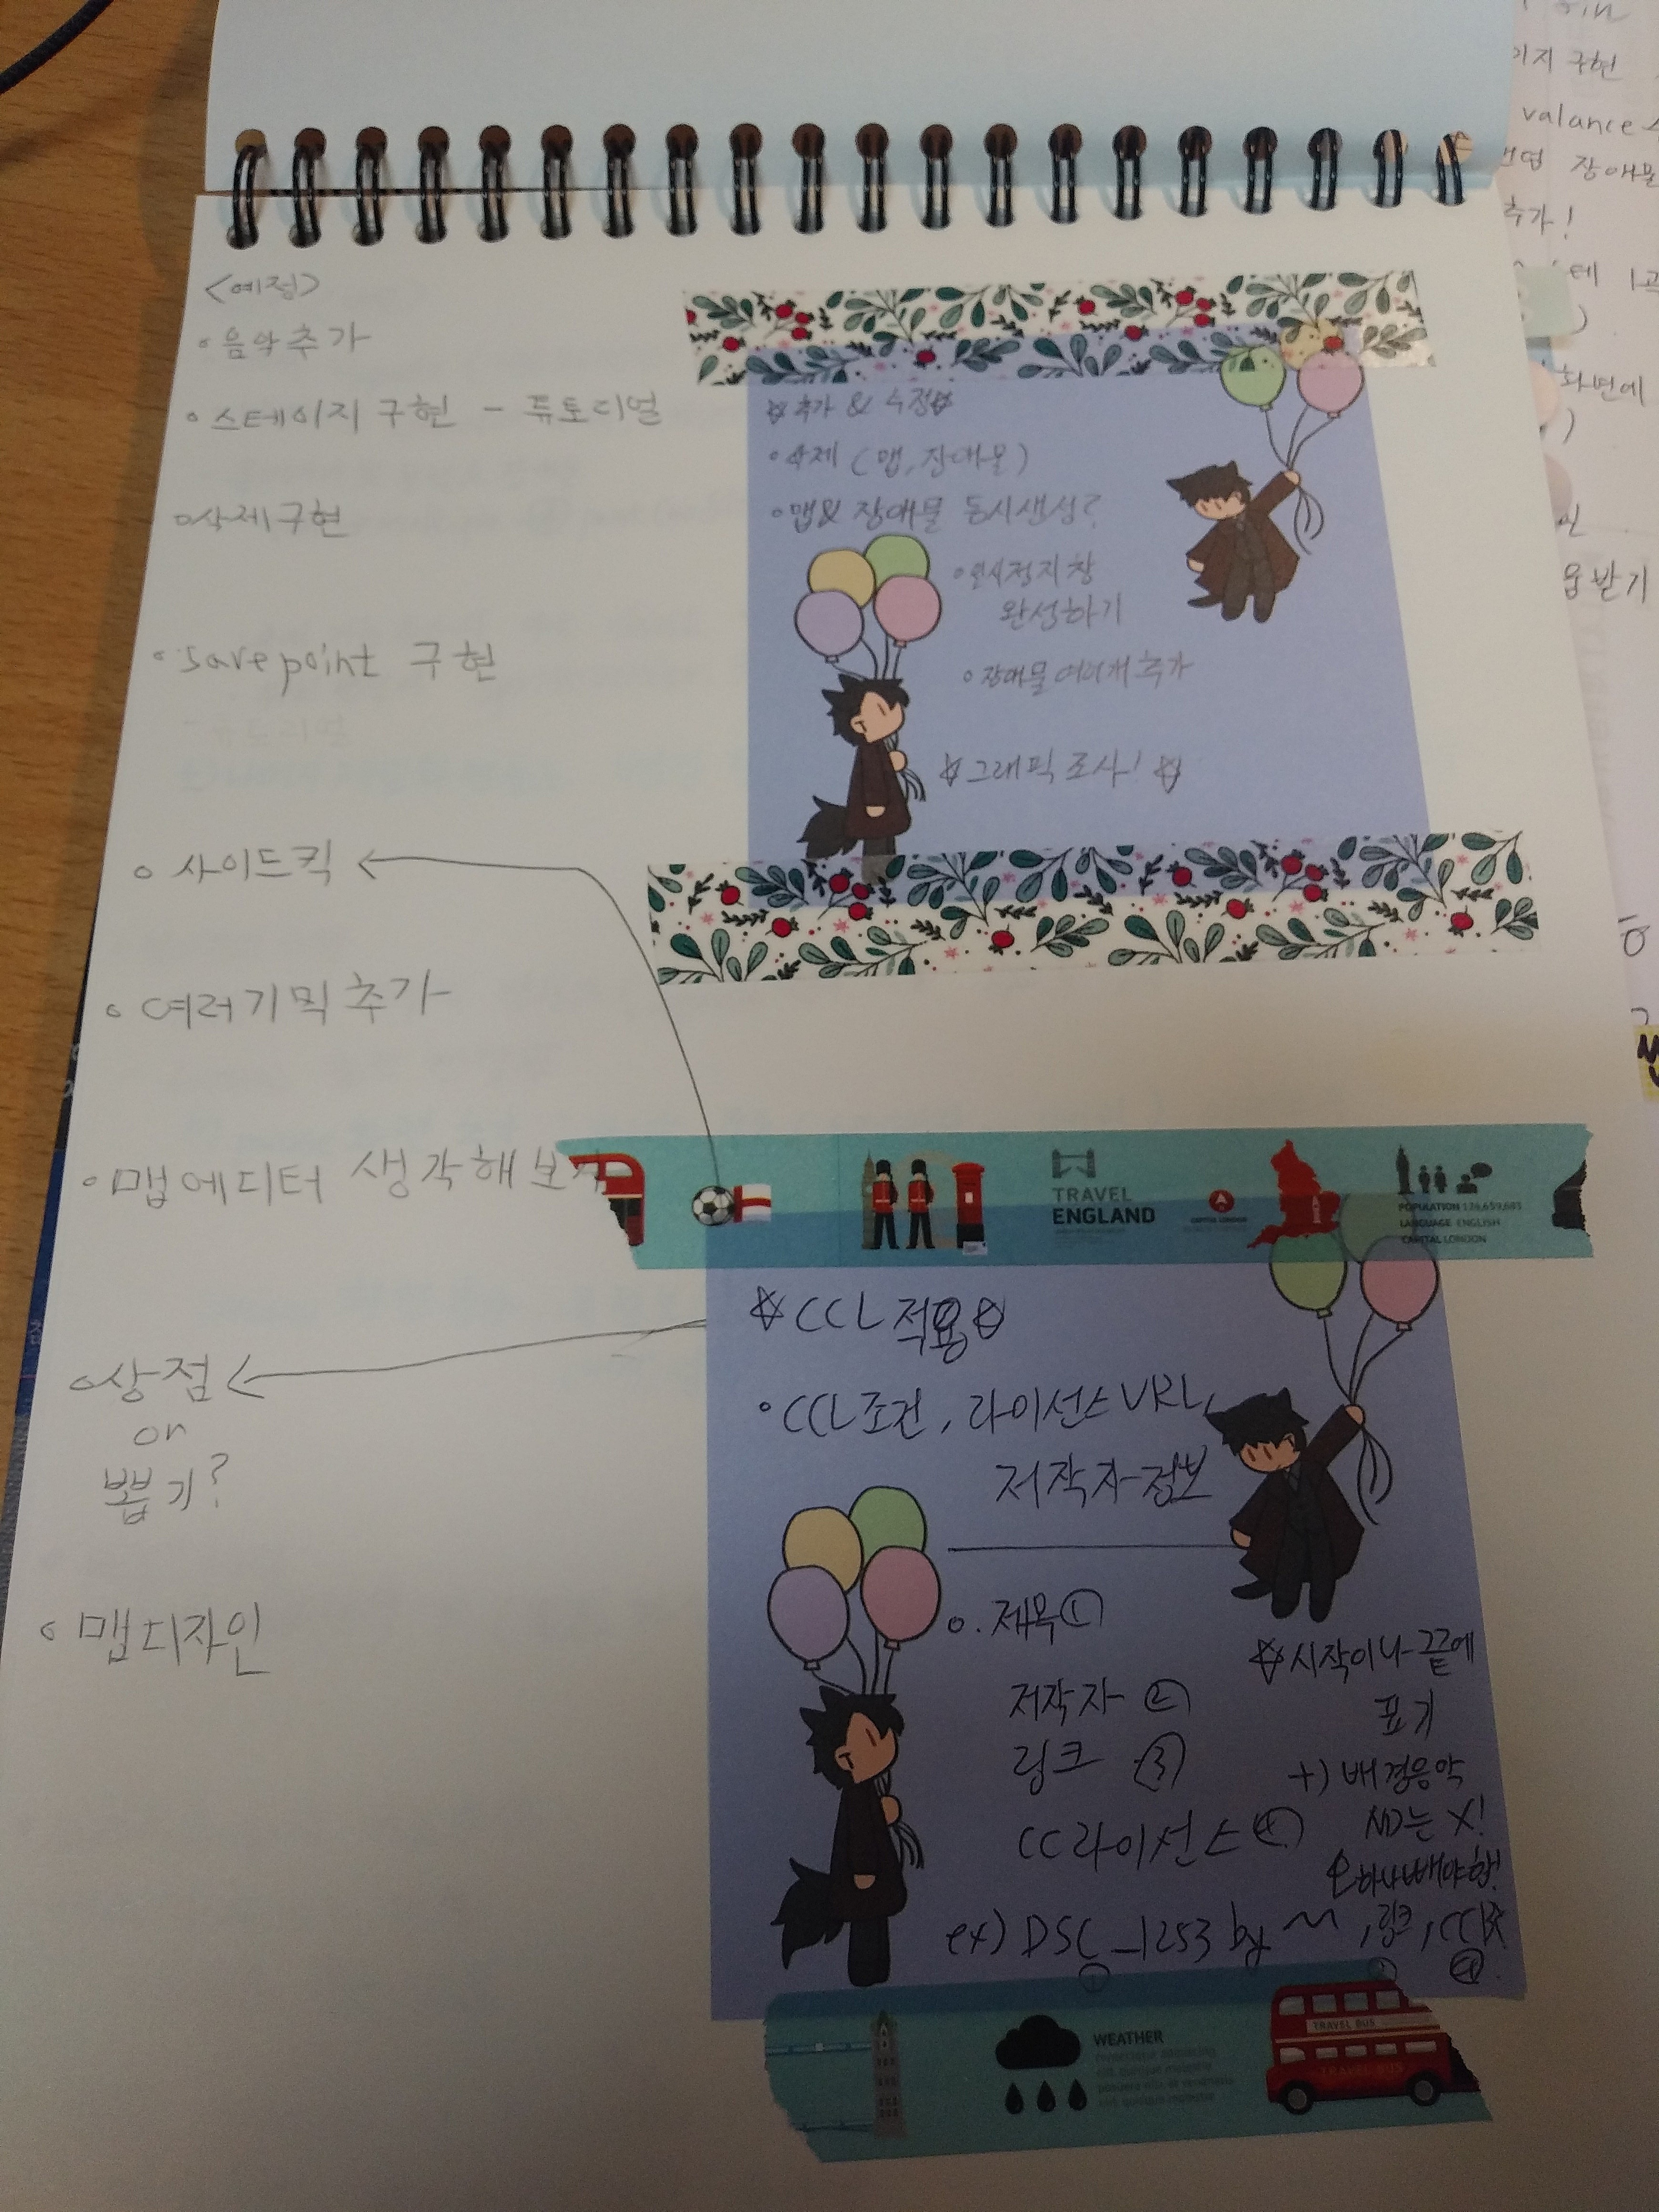 <예정>
• 음악추가
• 스테이지 구현 - 튜토리얼
• 삭제구현
• savepoint 구현
• 사이드킥
• 여러기믹 추가
• 맵에디터 생각해보기
• 상점
or
뽑기?
• 맵디자인
☆추가 & 수정☆
• 삭제 (맵, 장애물)
• 맵& 장애물 동시생성?
• 일시정지창
완성하기
• 장애물 여러개 추가
☆그래픽 조사! ☆
TRAVEL
ENGLAND
CAPITAL LONDON
POPULATION
LANGUAGE ENGLISH
CAPITAL LONDON
☆CCL 적용☆
• CCL조건, 라이선스 URL,
저작자 정보
○. 제목①
저작자 ②
링크 ③
CC라이선스④
☆시작이나 끝에
표기
+) 배경음악
ND는 X!
하나 빼야함!
ex) DSC_1253 by ~ , 링크, CC
① ③ ④
WEATHER
TRAVEL BUS
TRAVEL BUS
이지 구현
valance
장애물
추가!
화면에
받기